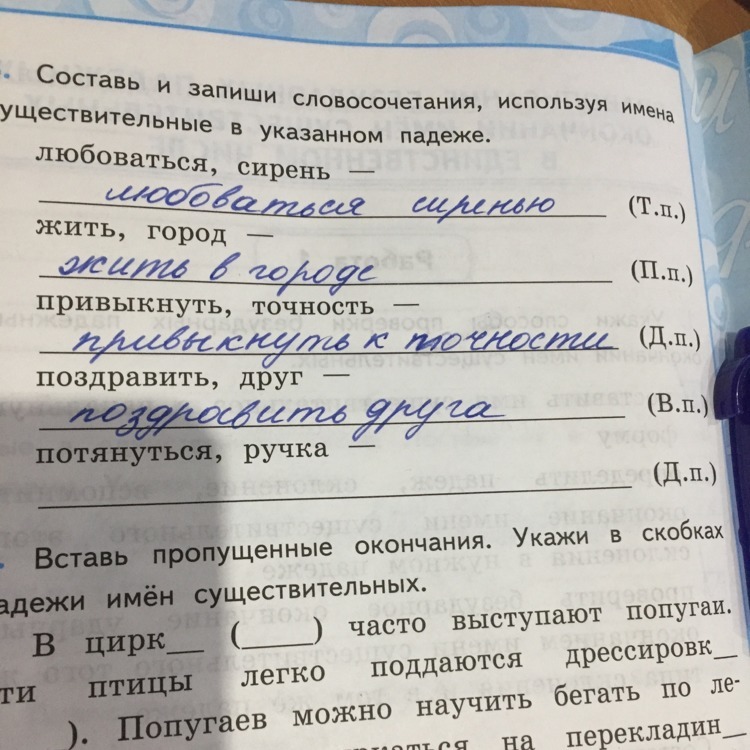 Составь и запиши словосочетания, используя имена
уществительные в указанном падеже.
любоваться, сирень —
любоваться сиренью (Т.п.)
жить, город —
жить в городе (П.п.)
привыкнуть, точность —
привыкнуть к точности (Д.п.)
поздравить, друг —
поздравить друга (В.п.)
потянуться, ручка —
(Д.п.)
Вставь пропущенные окончания. Укажи в скобках
адежи имён существительных.
В цирк__ (____) часто выступают попугаи.
ти птицы легко поддаются дрессировк__
). Попугаев можно научить бегать по ле-
на перекладин__